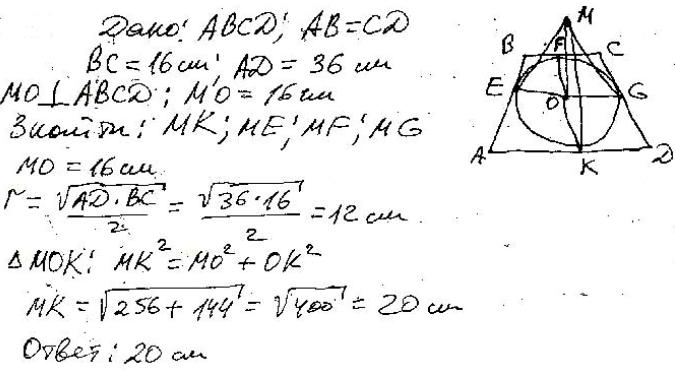 Дано: ABCD; AB=CD
BC=16см; AD=36 см
MO⊥ABCD; MO=16см
Знайти: MK; ME; MF; MG
MO=16см
r = √(AD·BC)/2 = √(36·16)/2 = 12 см
△MOK: MK²=MO²+OK²
MK = √(256+144) = √400 = 20 см
Ответ: 20 см
M
B
F
C
E
O
G
A
K
D